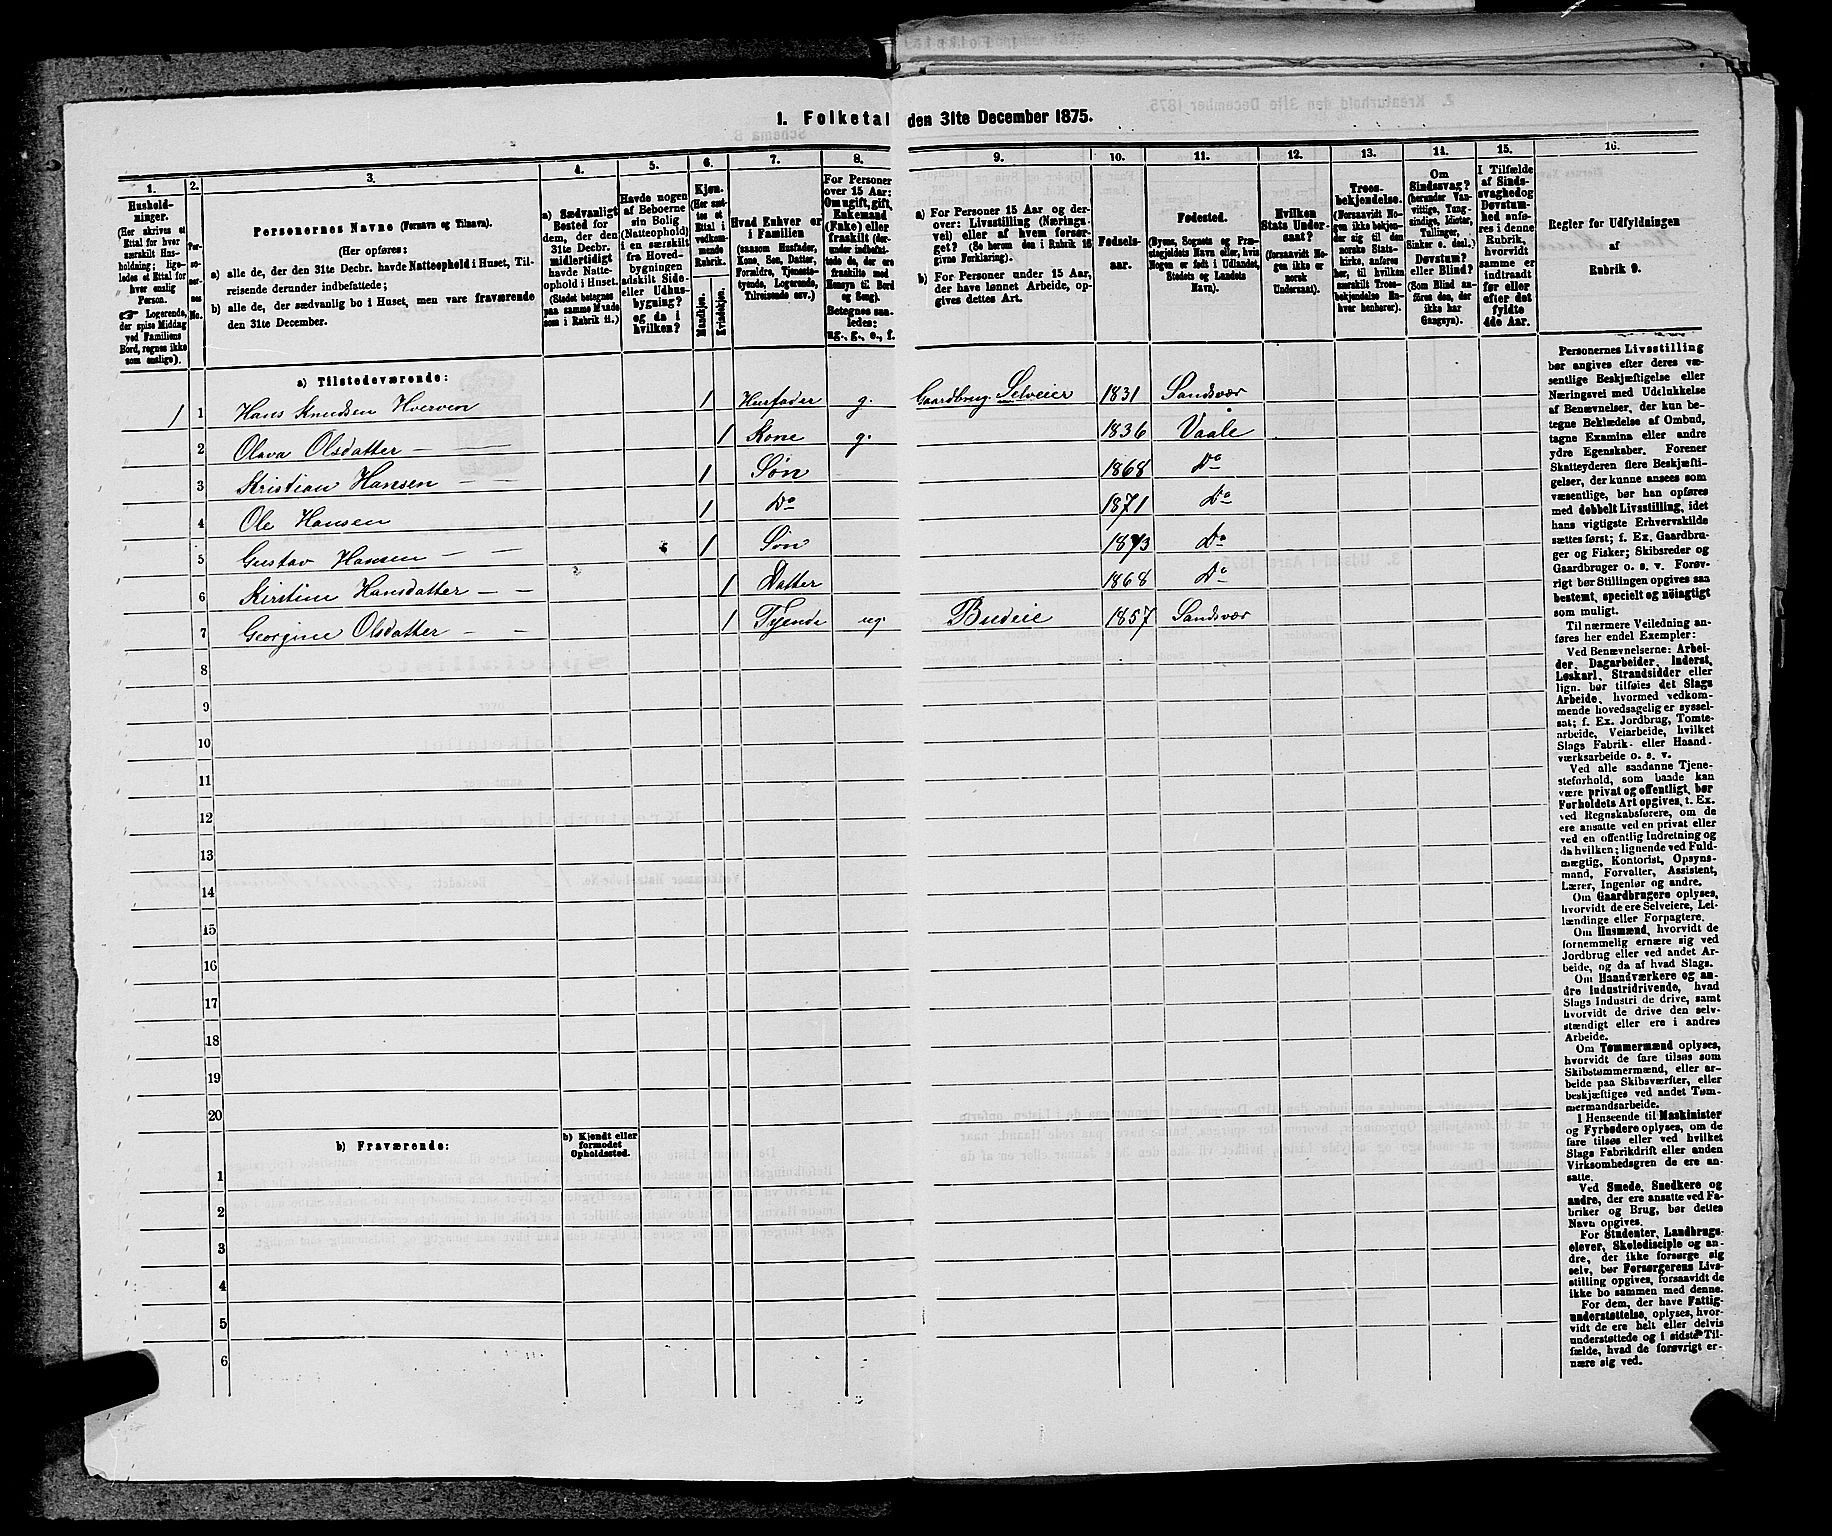 1. Folketal den 31te December 1875.
1. 2. 3. 4. 5. 6. 7. 8. 9. 10. 11. 12. 13. 14. 15. 16.
Hushold-
ninger.
(Her skrives et
Ettal for hver
særskilt Hus-
holdning; lige-
ledes et Ettal for
hver enslig
Person.
☞ Logerende,
der spise Middag
ved Familiens
Bord, regnes ikke
som enslige).
Per-
so-
ner-
nes
No.
Personernes Navne (Fornavn og Tilnavn).
(Her opføres:
a) alle de, der den 31te Decbr. havde Natteophold i Huset, Til-
reisende derunder indbefattede;
b) alle de, der sædvanlig bo i Huset, men vare fraværende
den 31te December.
a) Sædvanligt
Bosted for
dem, der den
31te Decbr.
midlertidigt
havde Natte-
ophold i Huset.
(Stedet betegnes
paa samme Maade
som i Rubrik 11.)
Havde nogen
af Beboerne
sin Bolig
(Natteophold)
i en særskilt
fra Hoved-
bygningen
adskilt Side-
eller Udhus-
bygning?
og da i
hvilken?
Kjøn.
(Her sæt-
tes et
Ettal i
vedkom-
mende
Rubrik.
Mandkjøn.
Kvindekjøn.
Hvad Enhver er
i Familien
(saasom Husfader,
Kone, Søn, Datter,
Forældre, Tjeneste-
tyende, Logerende,
Tilreisende osv.)
For Personer
over 15 Aar:
Om ugift, gift,
Enkemand
(Enke) eller
fraskilt (der-
under indbefat-
tede de, der ere
fraskilte med
Hensyn til Bord
og Seng).
Betegnes saa-
ledes:
ug., g., e., f.
a) For Personer 15 Aar og der-
over: Livsstilling (Nærings-
vei) eller af hvem forsør-
get? (Se herom den i Rubrik 16
givne Forklaring).
b) For Personer under 15 Aar,
der have lønnet Arbeide, op-
gives dettes Art.
Fødsels-
aar.
Fødested.
(Byens, Sognets og Præ-
stegjeldets Navn eller, hvis
Nogen er født i Udlandet,
Stedets og Landets
Navn).
Hvilken
Stats Under-
saat?
(forsaavidt No-
gen ikke er
norsk
Undersaat).
Troes-
bekjendelse.
(Forsaavidt No-
gen ikke bekjen-
der sig til den
norske Stats-
kirke, anføres
her, til hvilken
særskilt Troes-
bekjendelse En-
hver henhører).
Om
Sindssvag?
(herunder Van-
vittige, Tung-
sindige, Idioter,
Tullinger,
Sinker o. desl.)
Døvstum?
eller Blind?
(Som Blind an-
føres den, der
ikke har
Gangsyn).
I Tilfælde
af Sinds-
svaghed og
Døvstum-
hed anfø-
res i denne
Rubrik,
hvorvidt
samme er
indtraadt
før eller
efter det
fyldte
4de Aar.
Regler for Udfyldningen
af
Rubrik 9.
a) Tilstedeværende:
1 1 Hans Knudsen Hverven 1 Husfader g. Gaardbrug. Selveier 1831 Sandsvær
2 Olava Olsdatter — — 1 Kone g. 1836 Vaale
3 Kristian Hansen — — 1 Søn 1868 Do
4 Ole Hansen 1 Do 1871 Do
5 Gustav Hansen — — 1 Søn 1873 Do
6 Kirstine Hansdatter — — 1 Datter 1868 Do
7 Georgine Olsdatter — — 1 Tyende ug. Budeie 1857 Sandsvær
8
9
10
11
12
13
14
15
16
17
18
19
20
b) Fraværende:
b) Kjendt eller
formodet
Opholdssted.
1
2
3
4
5
6
Personernes Livsstilling
bør angives efter deres væ-
sentlige Beskjæftigelse eller
Næringsvei med Udelukkelse
af Benævnelser, der kun be-
tegne Beklædelse af Ombud,
tagne Examina eller andre
ydre Egenskaber. Forener
Skatteyderen flere Beskjæfti-
gelser, der kunne ansees som
væsentlige, bør han opføres
med dobbelt Livsstilling, idet
hans vigtigste Erhvervskilde
sættes først; f. Ex. Gaardbru-
ger og Fisker; Skibsreder og
Gaardbruger o. s. v. Forøv-
rigt bør Stillingen opgives saa
bestemt, specielt og nøiagtigt
som muligt.
Til nærmere Veiledning an-
føres her endel Exempler:
Ved Benævnelserne: Arbei-
der, Dagarbeider, Inderst,
Løskarl, Strandsidder eller
lign. bør tilføies det Slags
Arbeide, hvormed vedkom-
mende hovedsagelig er syssel-
sat; f. Ex. Jordbrug, Tomte-
arbeide, Veiarbeide, hvilket
Slags Fabrik- eller Haand-
værksarbeide o. s. v.
Ved alle saadanne Tjene-
steforhold, som baade kan
være privat og offentligt, bør
Forholdets Art opgives, t. Ex.
ved Regnskabsførere, om de
ere ansatte ved en privat eller
ved en offentlig Indretning og
da hvilken; lignende ved Fuld-
mægtig, Kontorist, Opsyns-
mand, Forvalter, Assistent,
Lærer, Ingeniør og andre.
Om Gaardbrugere oplyses,
hvorvidt de ere Selveiere, Lei-
lændinge eller Forpagtere.
Om Husmænd, hvorvidt de
fornemmelig ernære sig ved
Jordbrug eller ved andet Ar-
beide, og da af hvad Slags.
Om Haandværkere og an-
dre Industridrivende, hvad
Slags Industri de drive, samt
hvorvidt de drive den selv-
stændigt eller ere i andres
Arbeide.
Om Tømmermænd oplyses,
hvorvidt de fare tilsøs som
Skibstømmermænd, eller ar-
beide paa Skibsværfter, eller
beskjæftiges ved andet Tøm-
mermandsarbeide.
I Henseende til Maskinister
og Fyrbødere oplyses, om de
fare tilsøs eller ved hvilket
Slags Fabrikdrift eller anden
Virksomhedsgren de ere an-
satte.
Ved Smede, Snedkere og
andre, der ere ansatte ved Fa-
briker og Brug, bør dettes
Navn opgives.
For Studenter, Landbrugs-
elever, Skoledisciple og an-
dre, der ikke forsørge sig
selv, bør Forsørgerens Livs-
stilling opgives, forsaavidt de
ikke bo sammen med denne.
For dem, der have Fattig-
understøttelse, oplyses, hvor-
vidt de ere helt eller delvis
understøttede og i sidste Til-
fælde, hvad de forøvrigt er-
nære sig ved.